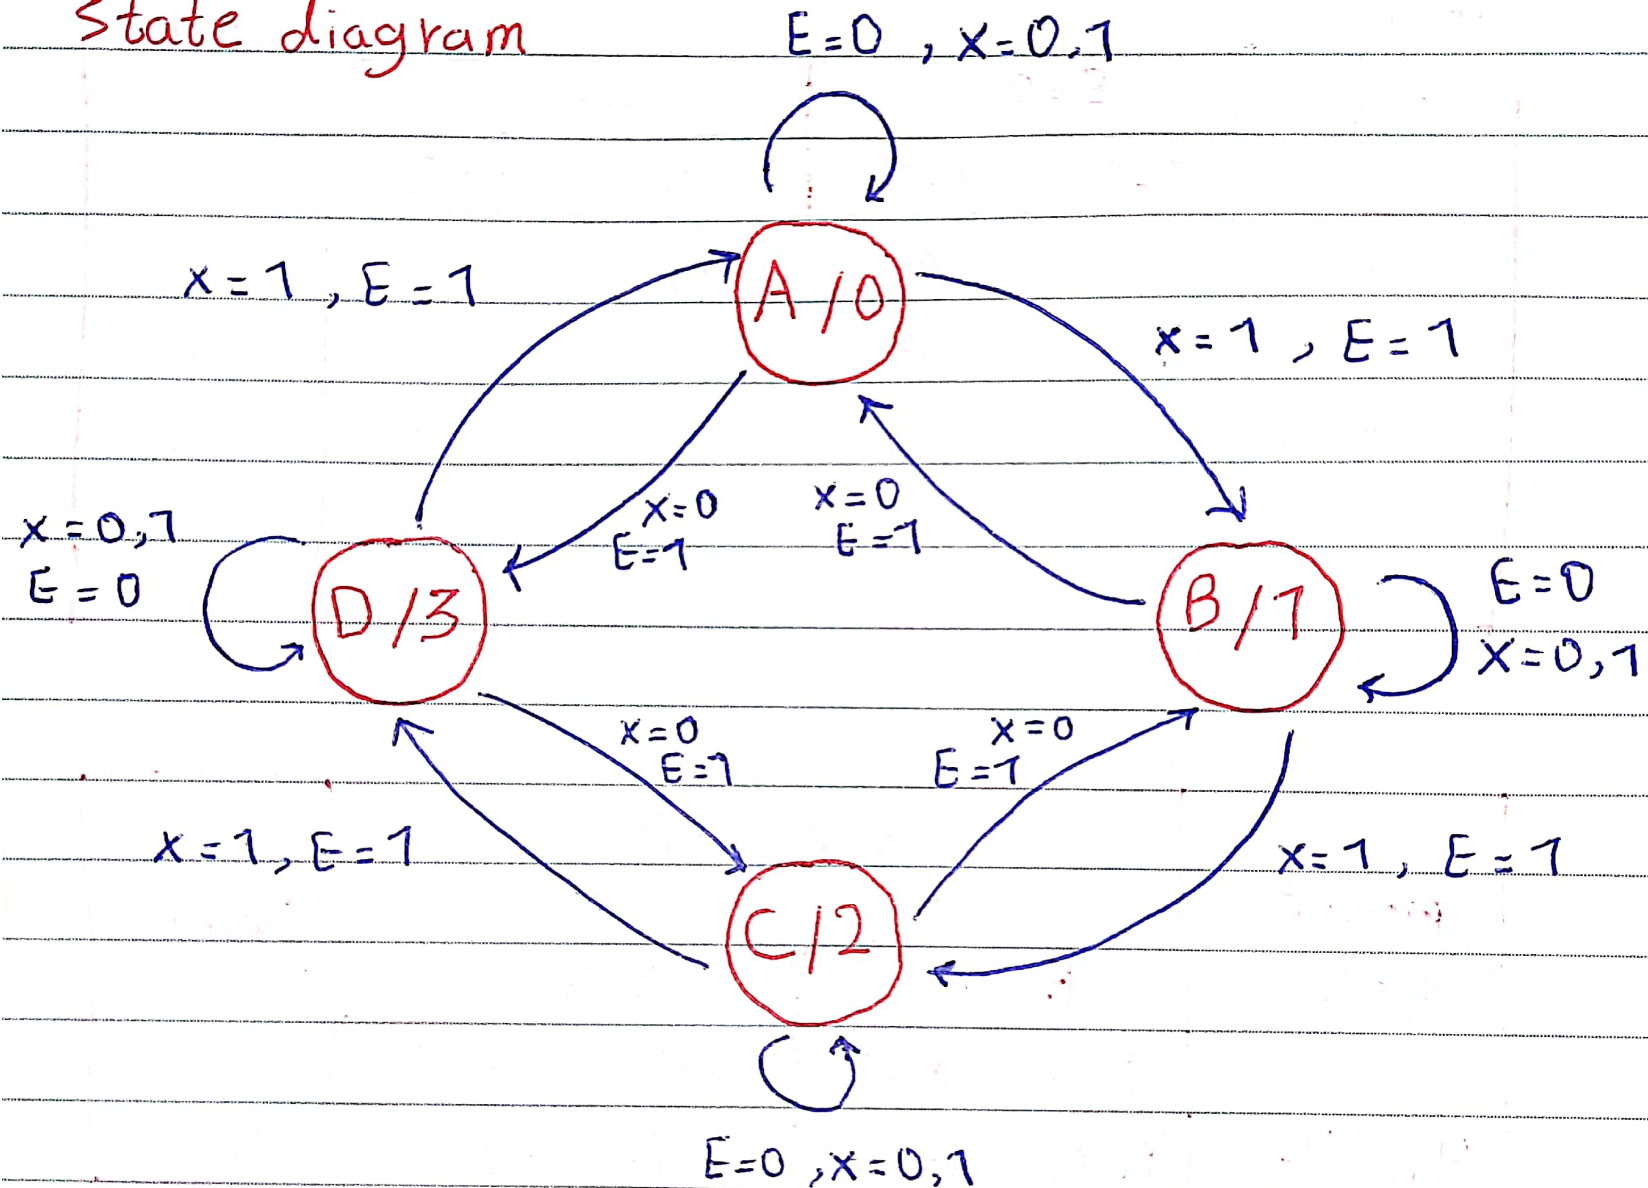 State diagram
E=0 , x=0,1
x=1 , E=1
A/0
x=1 , E=1
x=0
E=1
x=0
E=1
x=0,1
E=0
D/3
B/1
E=0
x=0,1
x=0
E=1
x=0
E=1
x=1, E=1
x=1, E=1
C/2
E=0 ,x=0,1